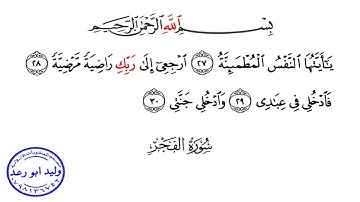 بِسْمِ اللَّهِ الرَّحْمَٰنِ الرَّحِيمِ
يَٰٓأَيَّتُهَا النَّفْسُ الْمُطْمَئِنَّةُ ٢٧ ارْجِعِي إِلَىٰ رَبِّكِ رَاضِيَةً مَرْضِيَّةً ٢٨
فَادْخُلِي فِي عِبَادِي ٢٩ وَادْخُلِي جَنَّتِي ٣٠
سُورَةُ الْفَجْرِ
وليد ابو رعد